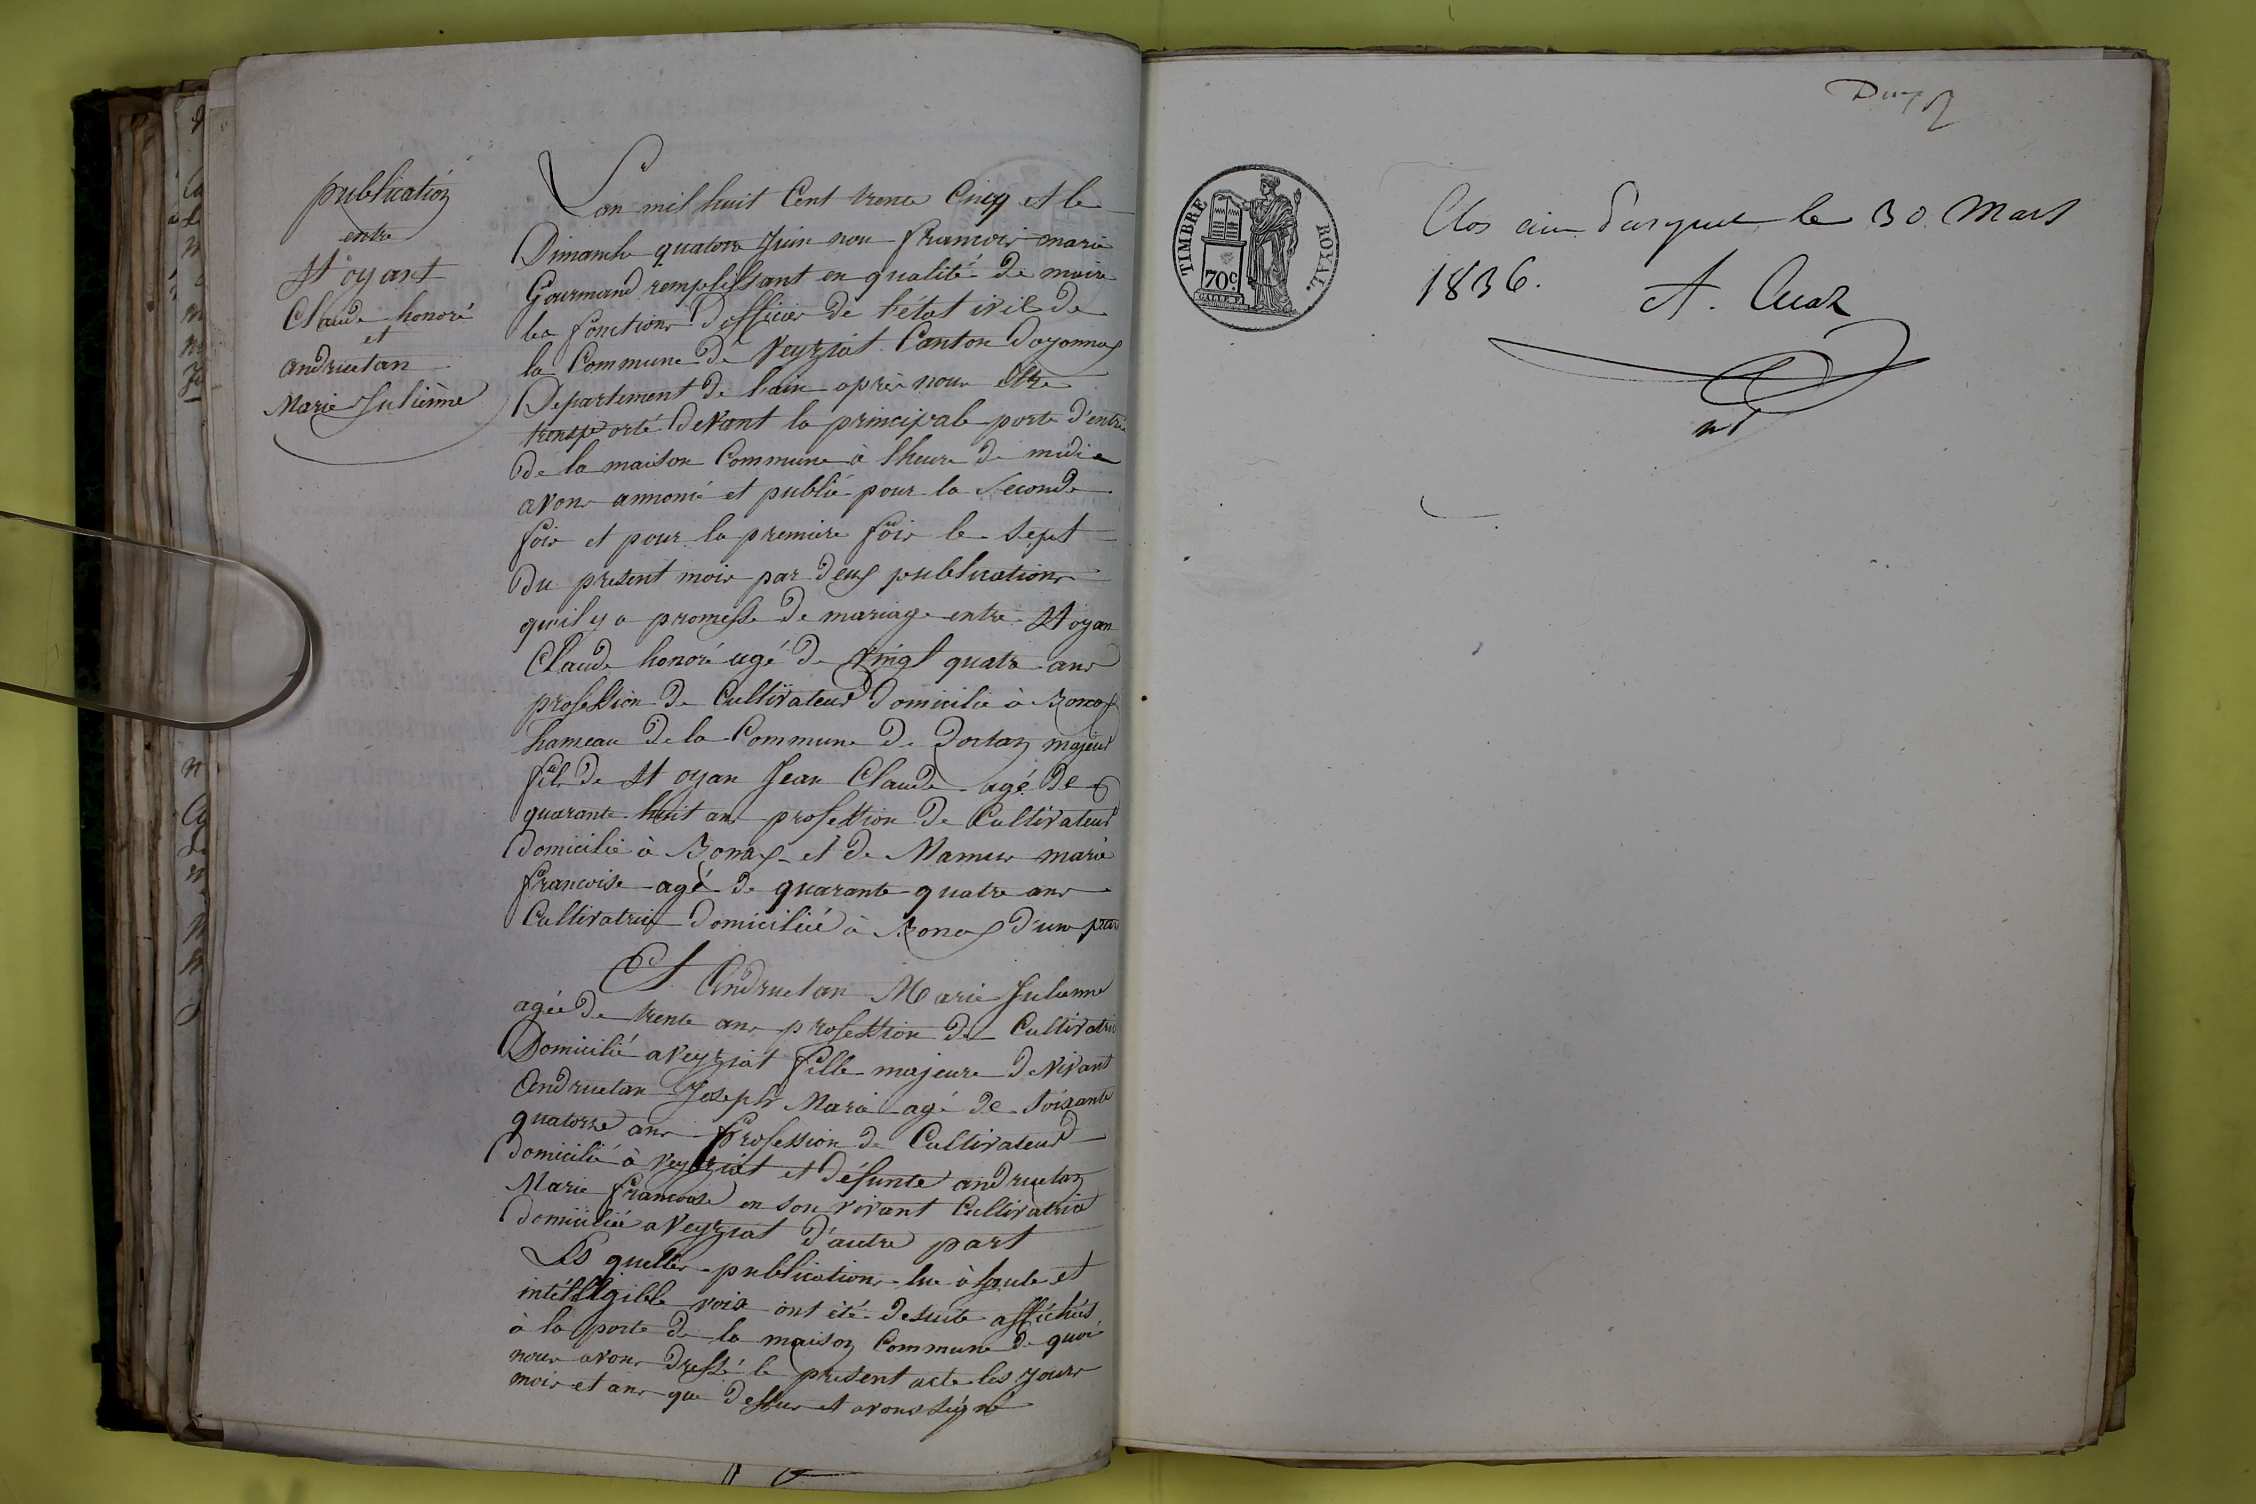 publication
entre
St oyant
Claude honoré
et
andruetan
Marie Julienne
Lan mil huit Cent trente Cinq et le
Dimanche quatorze Juin nou francois marie
Gourmand remplissant en qualité de maire
les fonctions d'officier de l'état civil de
la Commune de Veyziat Canton doyonnax
Departement de l'ain après nous être
transporté devant la principale porte d'entrée
de la maison Commune à l'heure de midi
avons annoncé et publié pour la seconde
fois et pour la premiere fois le sept
du présent mois par deux publications
qu'il y a promesse de mariage entre St oyan
Claude honoré agé de vingt quatre ans
profession de Cultivateur domicilié à Bonaz
hameau de la Commune de Dortan majeur
fils de St oyan Jean Claude agé de
quarante huit ans profession de Cultivateur
domicilié à Bonaz et de marie
francoise agé de quarante quatre ans
Cultivatrice domiciliée à Bonaz d'une part
Et Andruetan Marie Julienne
agée de trente ans profession de Cultivatrice
Domicilié a Veyziat fille majeure de vivant
Andruetan Joseph Marie agé de soixante
quatorze ans profession de Cultivateur
domicilié à Veyziat et défunte andruetan
Marie francoise en son vivant Cultivatrice
domiciliée a Veyziat d'autre part
Les quelles publications lue à haute et
intelligible voix ont été desuite affichés
à la porte de la maison Commune de quoi
nous avons dressé le présent acte les jours
mois et ans que dessus et avons signé
TIMBRE ROYAL.
70c.
Clos le 30. Mars
1836.
A.